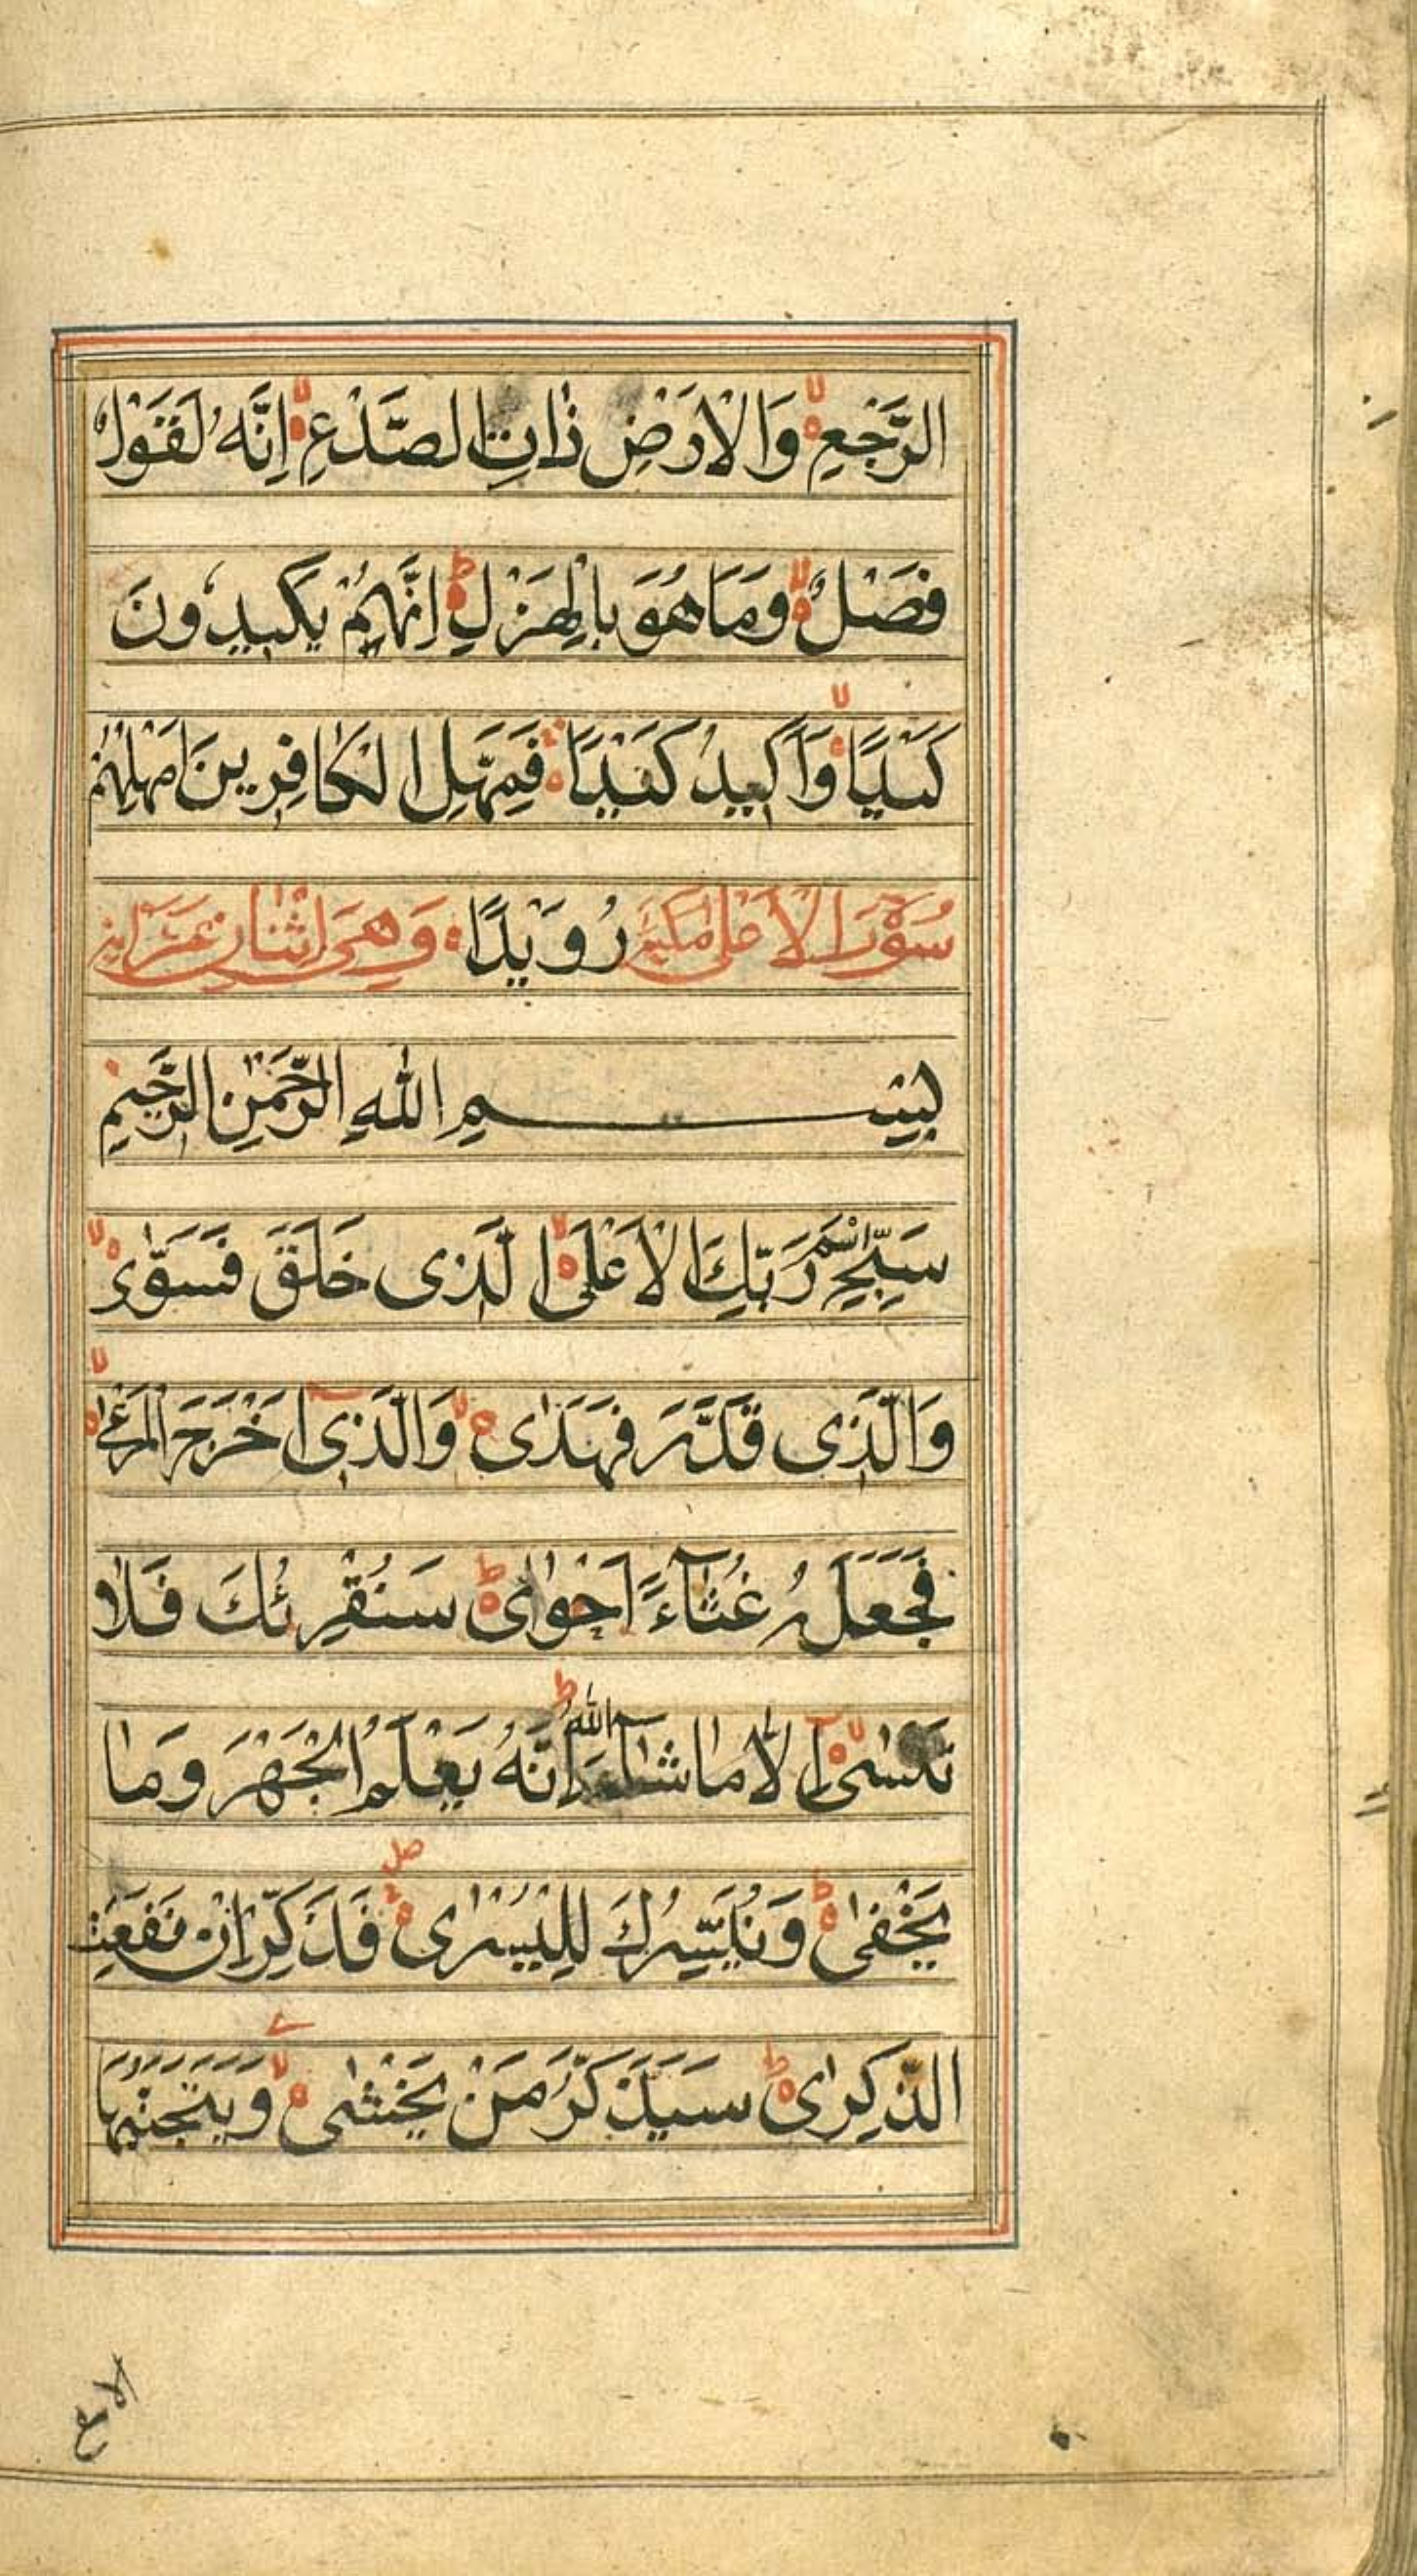 الرَّجْعِ ۙ وَالْاَرْضِ ذَاتِ الصَّدْعِ ۙ اِنَّهٗ لَقَوْلٌ
فَصْلٌ ۙ وَمَا هُوَ بِالْهَزْلِ ؕ اِنَّهُمْ يَكِيدُونَ
كَيْدًا ۙ وَاَكِيدُ كَيْدًا فَمَهِّلِ الْكَافِرِينَ اَمْهِلْهُمْ
سُوْرَةُ الْاَعْلٰى مَكِّيَّةٌ رُوَيْدًا وَهِىَ اثْنَانِ
بِسْمِ اللّٰهِ الرَّحْمٰنِ الرَّحِيْمِ
سَبِّحِ اسْمَ رَبِّكَ الْاَعْلَى ۙ الَّذِى خَلَقَ فَسَوّٰى ۙ
وَالَّذِى قَدَّرَ فَهَدٰى ۙ وَالَّذِىٓ اَخْرَجَ الْمَرْعٰى ۙ
فَجَعَلَهٗ غُثَآءً اَحْوٰاى ؕ سَنُقْرِئُكَ فَلَا
تَنْسٰىٓ ۙ اِلَّا مَا شَآءَ اللّٰهُ ؕ اِنَّهٗ يَعْلَمُ الْجَهْرَ وَمَا
يَخْفٰى ؕ وَنُيَسِّرُكَ لِلْيُسْرٰى ۖ فَذَكِّرْ اِنْ نَفَعَتِ
الذِّكْرٰاى ؕ سَيَذَّكَّرُ مَنْ يَخْشٰى ۙ وَيَتَجَنَّبُهَا